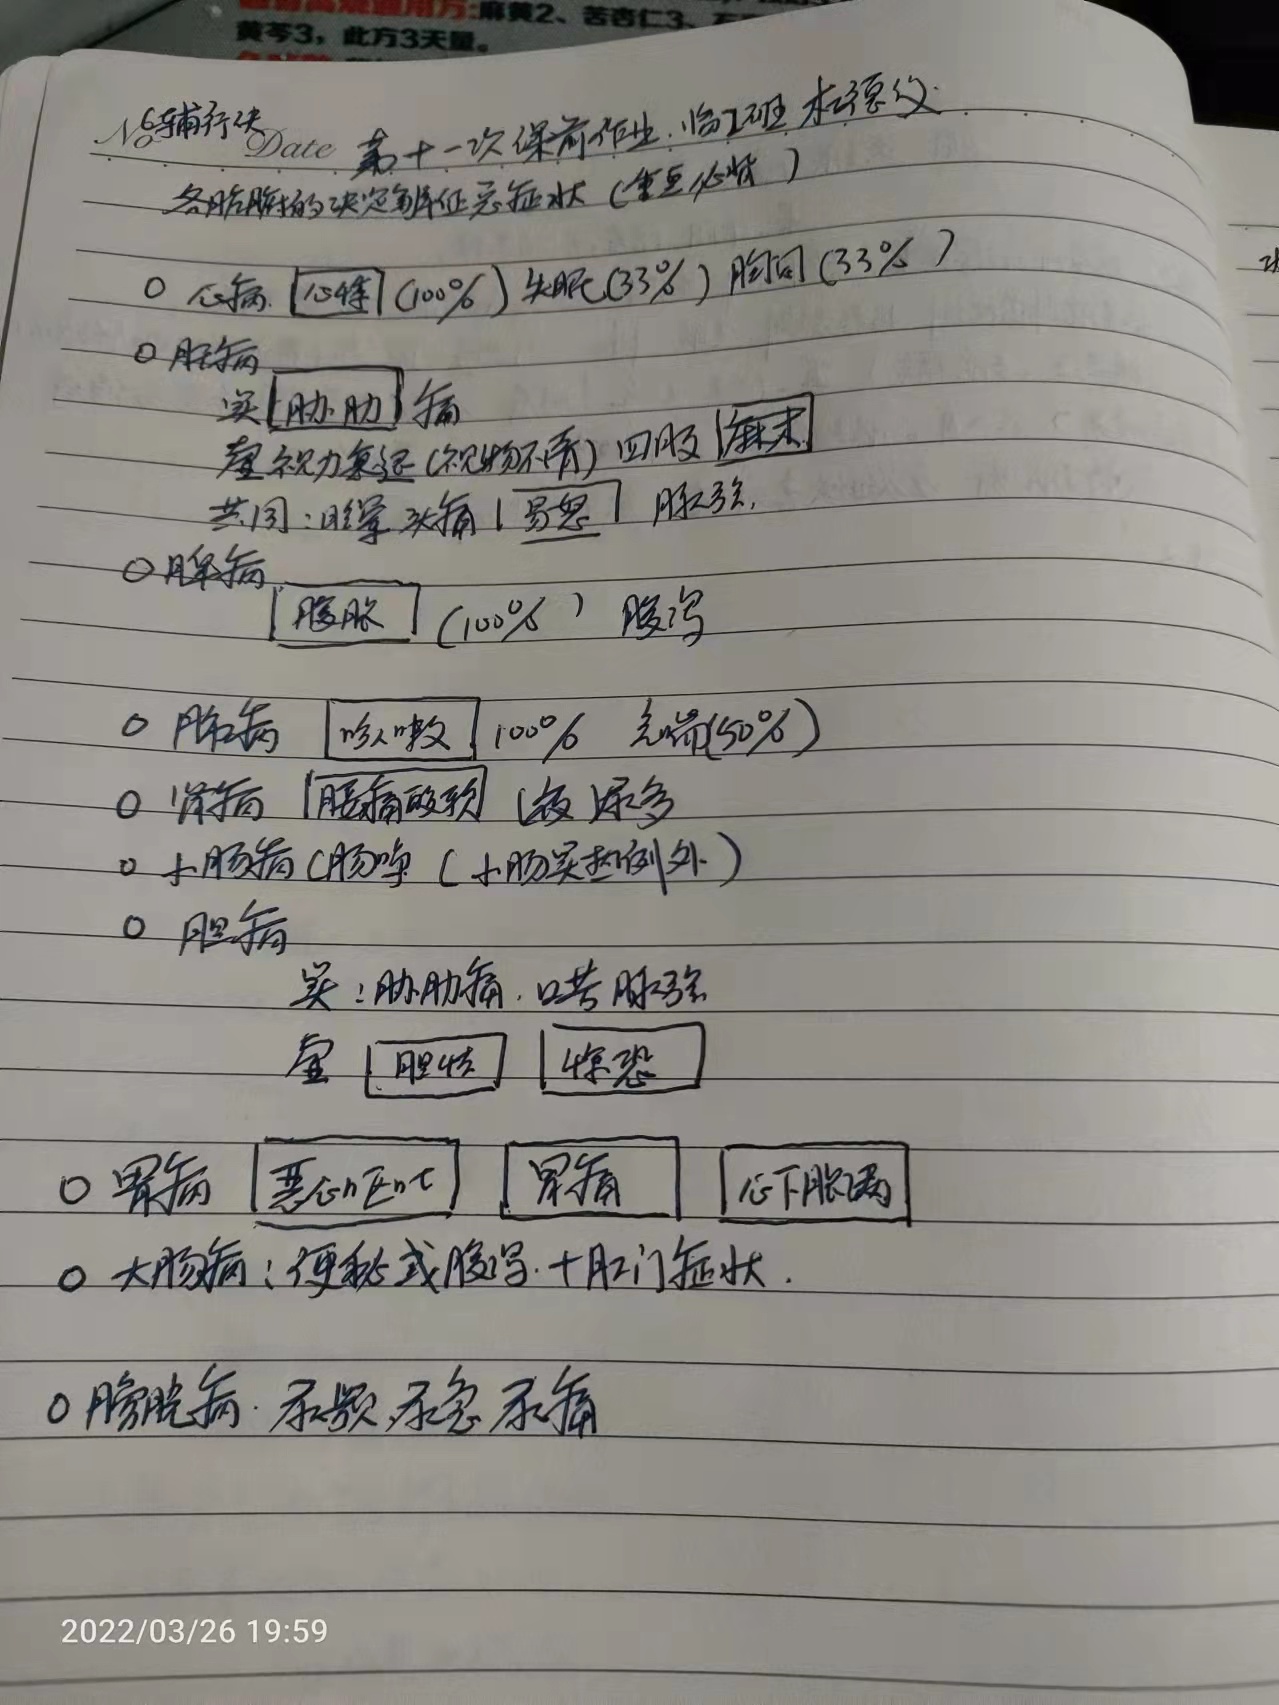 麻黄2、苦杏仁3、
黄芩3，此方3天量。
No 6辅行诀 Date 第十一次课前作业. 临2班
各脏腑的决定辨证意症状（重点必背）
心病. 心悸（100%）失眠（33%）胸闷（33%）
肝病
实 胁肋 痛
虚 视力衰退（视物不清）四肢 麻木
共同：眩晕 头痛 易怒 脉弦.
脾病
腹胀（100%） 腹泻
肺病 咳嗽 100% 气喘（50%）
肾病 腰痛酸软（夜）尿多
小肠病（肠鸣（小肠实热例外）
胆病
实：胁肋痛. 口苦 脉弦
虚 胆怯 惊恐
胃病 恶心呕吐 胃痛 心下胀满
大肠病：便秘或腹泻. 十肛门症状.
膀胱病. 尿频 尿急 尿痛
2022/03/26 19:59